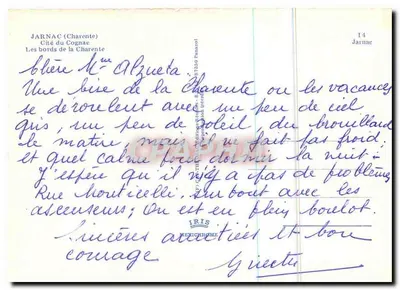 JARNAC (Charente)
Cité du Cognac
Les bords de la Charente
14
Jarnac
Chère Mme Alzueta
Une bise de la Charente ou les vacances
se déroulent avec un peu de ciel
gris, un peu de soleil du brouillard
le matin, mais il ne fait pas froid,
et quel calme pour dormir la nuit -
J'espère qu'il n'y a pas de problèmes
Rue Monticelli, surtout avec les
ascenseurs; On est en plein boulot.
Sincères amitiés et bon
courage
IRIS
MEXICHROME